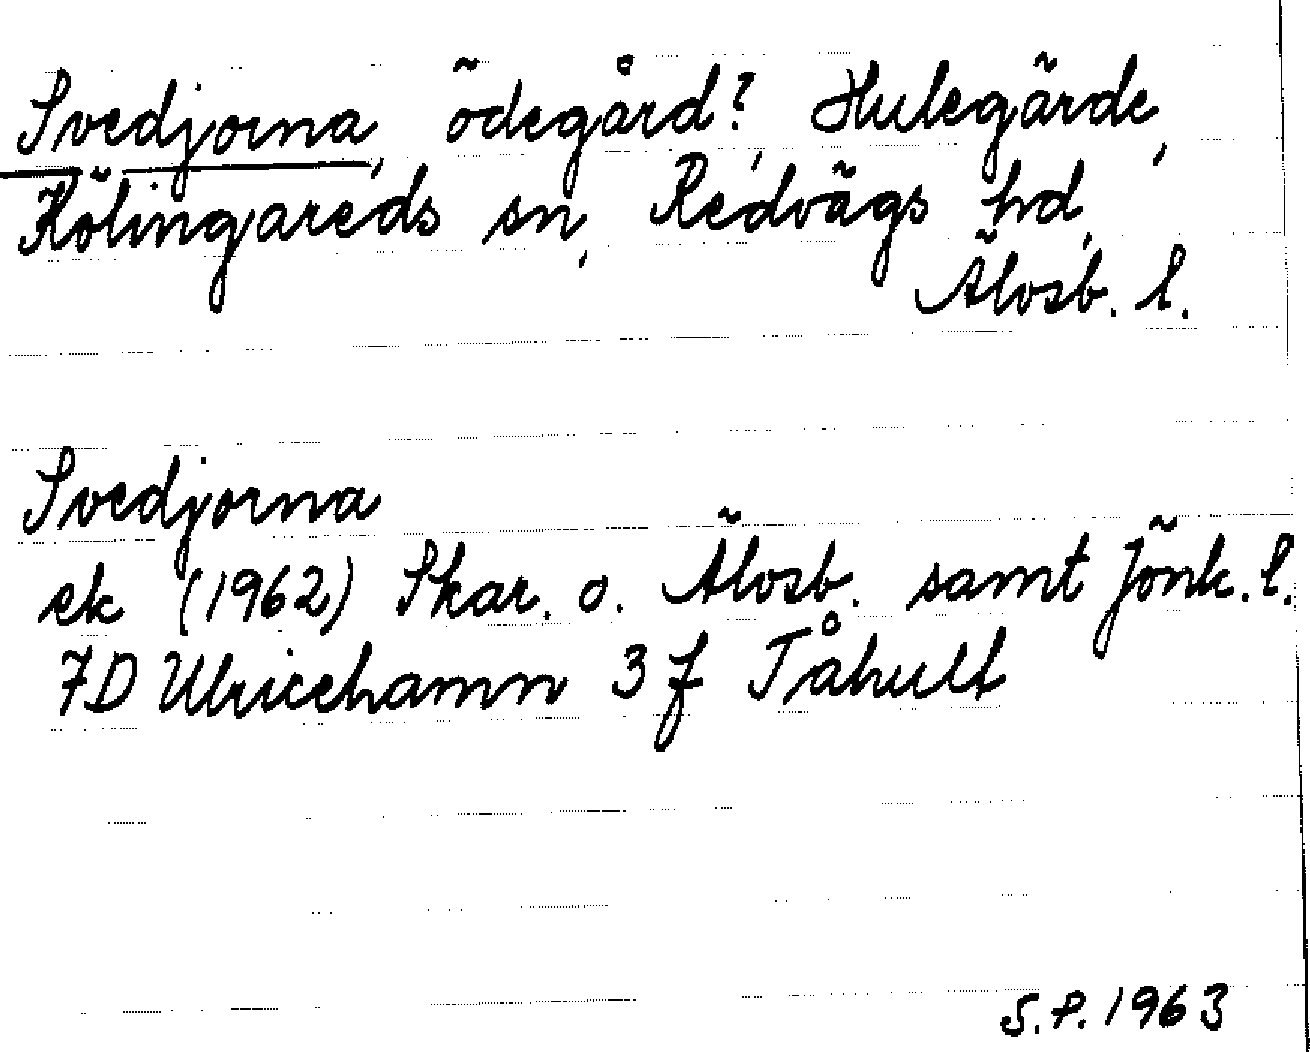 Svedjorna, ödegård?, Hulegärde,
Kölingareds sn, Redvägs hd,
Älvsb. l.
Svedjorna
ek (1962) Skar. o. Älvsb. samt Jönk. l.
7D Ulricehamn 3 f Tåhult
S.P. 1963